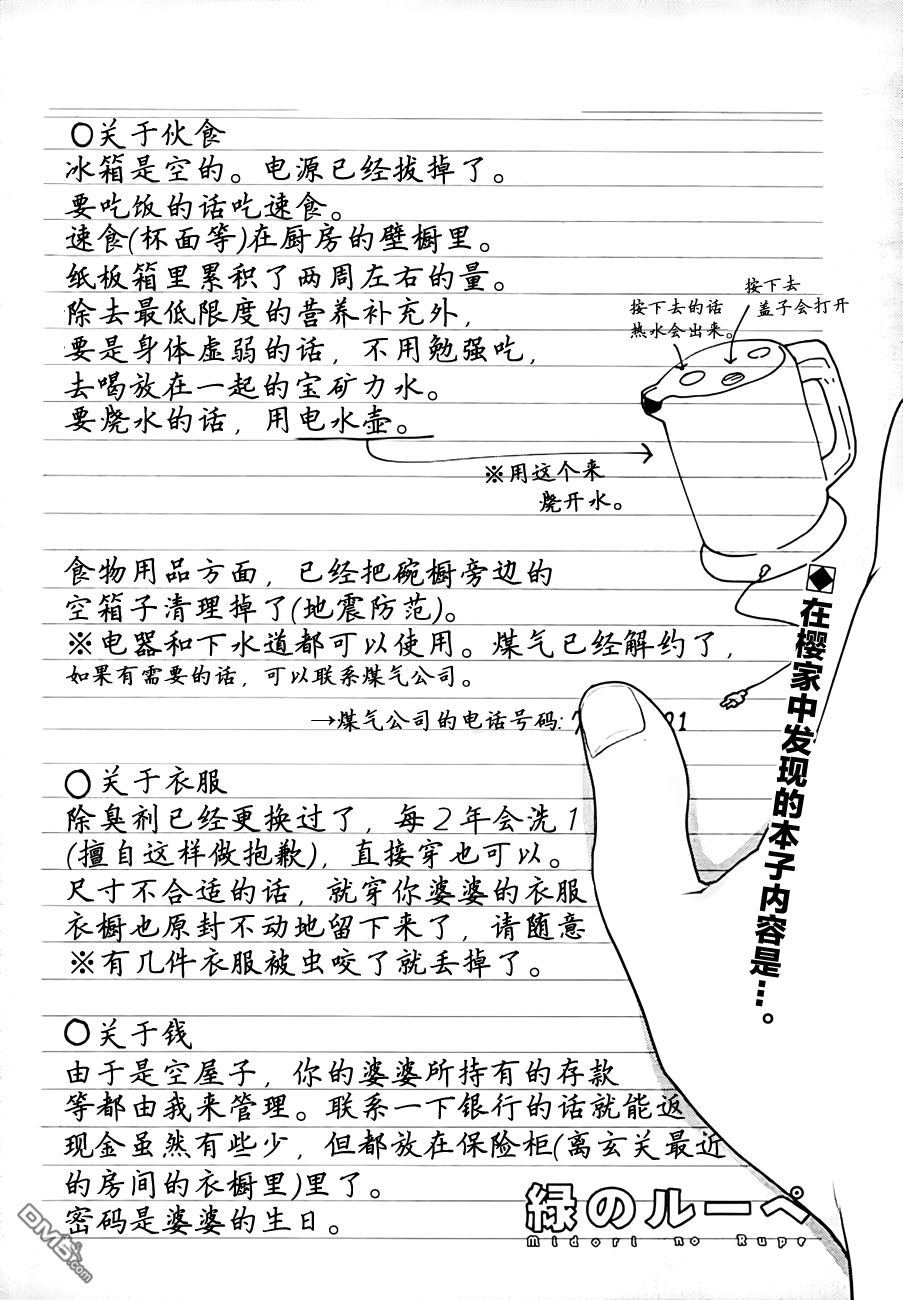 ○关于伙食
冰箱是空的。电源已经拔掉了。
要吃饭的话吃速食。
速食(杯面等)在厨房的壁橱里。
纸板箱里累积了两周左右的量。
除去最低限度的营养补充外，
要是身体虚弱的话，不用勉强吃，
去喝放在一起的宝矿力水。
要烧水的话，用电水壶。
按下去
盖子会打开
按下去的话
热水会出来。
※用这个来
烧开水。
食物用品方面，已经把碗橱旁边的
空箱子清理掉了(地震防范)。
※电器和下水道都可以使用。煤气已经解约了，
如果有需要的话，可以联系煤气公司。
→煤气公司的电话号码:
○关于衣服
除臭剂已经更换过了，每2年会洗1
(擅自这样做抱歉)，直接穿也可以。
尺寸不合适的话，就穿你婆婆的衣服
衣橱也原封不动地留下来了，请随意
※有几件衣服被虫咬了就丢掉了。
○关于钱
由于是空屋子，你的婆婆所持有的存款
等都由我来管理。联系一下银行的话就能返
现金虽然有些少，但都放在保险柜(离玄关最近
的房间的衣橱里)里了。
密码是婆婆的生日。
◆在樱家中发现的本子内容是…。
緑のルーペ
Midori no Rupe